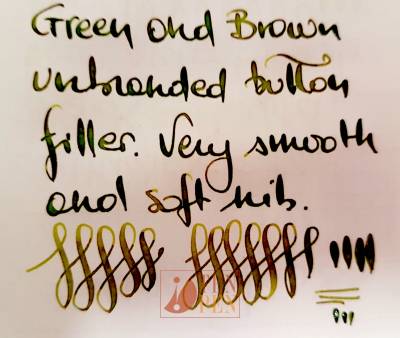 Green and Brown
unbranded button
filler. Very smooth
and soft nib.
PEN